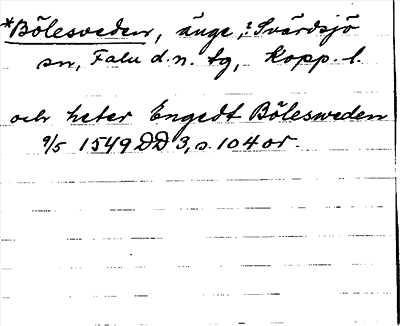 *Bölesveden, änge, i Svärdsjö
sn, Falu d.n. tg, Kopp. l.
och heter Engedt Bölesweden
9/5 1549 DD 3, s. 104 or.